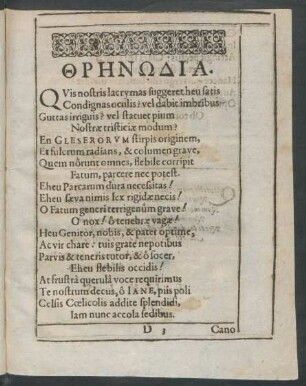 ΘΡΗΝΩΔΙΑ.
QVis nostris lacrymas suggeret heu satis
Condignas oculis? vel dabit imbribus
Guttas irriguis? vel statuet pium
Nostræ tristiciæ modum?
En GLESERORVM stirpis originem,
Et fulcrum radians, & columen grave,
Quem nôrunt omnes, flebile corripit
Fatum, parcere nec potest.
Eheu Parcarum dura necesitas!
Eheu sæva nimis lex rigidæ necis!
O Fatum generi terrigenûm grave!
O nox! ô tenebræ vagæ!
Heu Genitor, nobis, & pater optime,
Ac vir chare: tuis grate nepotibus
Parvis & teneris tutor, & ô socer,
Æheu flebilis occidis!
At frustrà querulâ voce requirimus
Te nostrum decus, ô IANE, piis poli
Celsis Cœlicolis addite splendidi,
Iam nunc accola sedibus.
D 3 Cano